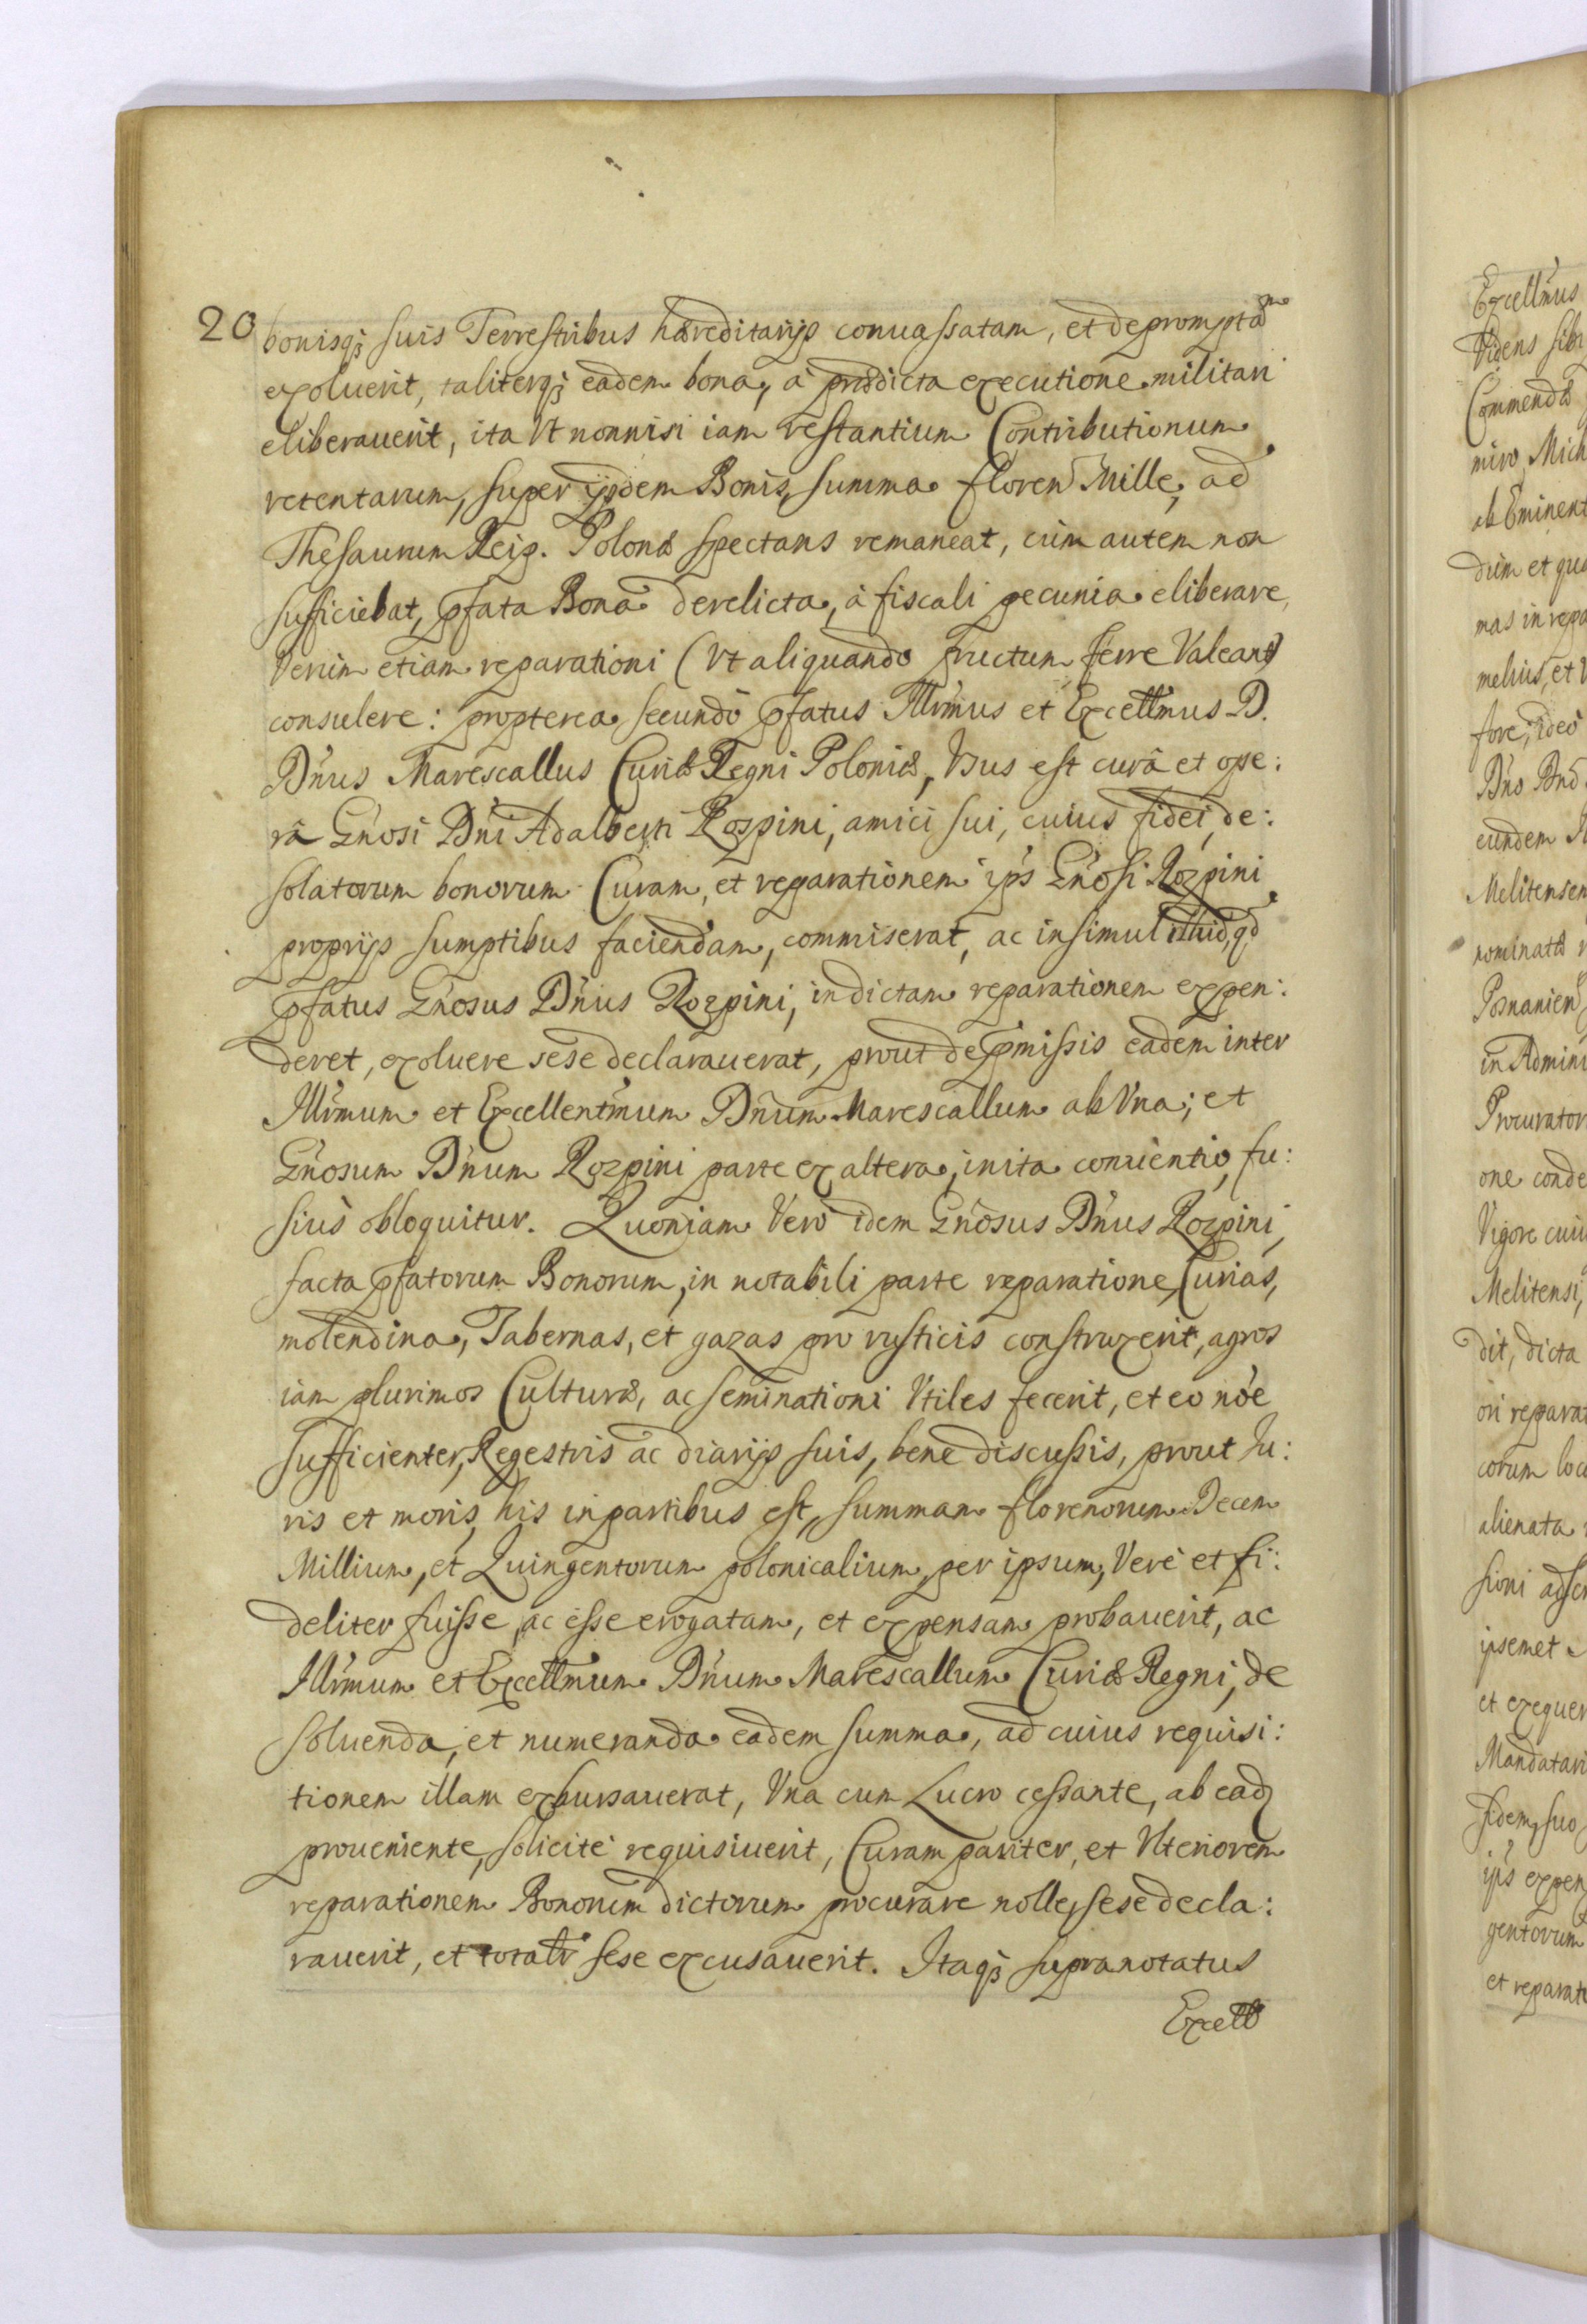 20
bonisq₃ suis Terrestribus hæreditarijs conuassatam, et depromptam
exoluerit, taliterq₃ eadem bona, à prædicta executione militari
eliberauerit, ita Vt nonnisi iam restantium Contributionum
retentarum, super ijsdem Bonis, summa floren Mille, ad
Thesaurum Reip. Polonæ spectans remaneat, cùm autem non
sufficiebat, pfata Bona derelicta, à fiscali pecunia eliberare,
Verùm etiam reparationi (Vt aliquando fructum ferre Valeant)
consulere: propterea secundò pfatus Illr̃mus et Excellm̃us D.
Dñus Marescallus Curiæ Regni Poloniæ, Vsus est curâ et ope:
râ Gñosi Dñi Adalberti Rozpini, amici sui, cuius fidei, de:
solatorum bonorum Curam, et reparationem ips Gñosi Rozpini
proprijs sumptibus faciendam, commiserat, ac insimul illud, qd
pfatus Gñosus Dñus Rozpini, in dictam reparationem expen:
deret, exoluere sese declarauerat, prout de pmissis eadem inter
Illr̃mum et Excellentm̃um Dñum Marescallum ab Vna; et
Gñosum Dñum Rozpini parte ex altera, inita conuentio, fu:
siùs obloquitur. Quoniam Verò idem Gñosus Dñus Rozpini,
facta pfatorum Bonorum, in notabili parte reparatione, Curias,
molendina, Tabernas, et gazas pro rusticis construxerit, agros
iam plurimos Culturæ, ac seminationi Vtiles fecerit, et eo nõe
sufficienter, Regestris ac diarijs suis, bene discussis, prout Iu:
ris et moris, his in partibus est, summam florenorum Decem
Millium, et Quingentorum polonicalium, per ipsum, Verè et fi:
deliter fuisse, ac esse erogatam, et expensam probauerit, ac
Illr̃mum et Excellm̃um Dñum Marescallum Curiæ Regni, de
soluenda, et numeranda eadem summa, ad cuius requisi:
tionem illam exbursauerat, Vna cum Lucro cessante, ab eadq
proueniente, solicitè requisiuerit, Curam pariter, et Vlteriorem
reparationem Bonorum dictorum procurare nolle, sese decla:
rauerit, et totalr sese excusauerit. Itaq₃ supranotatus
Excell
Excellm̃us
Videns sibi
Commendæ
miro Mich
ab Eminent
dùm et qua
mas in repa
meliùs, et V
fore, ideò
Dño Dño
eundem
Melitensem
nominatæ
Posnanien
in Admini
Procurator
one conde
Vigore cuiu
Melitensi,
dit, dicta
ori reparat
corum loco
alienata
sioni adscr
ipsemet
et exequer
Mandatari
fidem, suo
ips expen
gentorum
et reparati